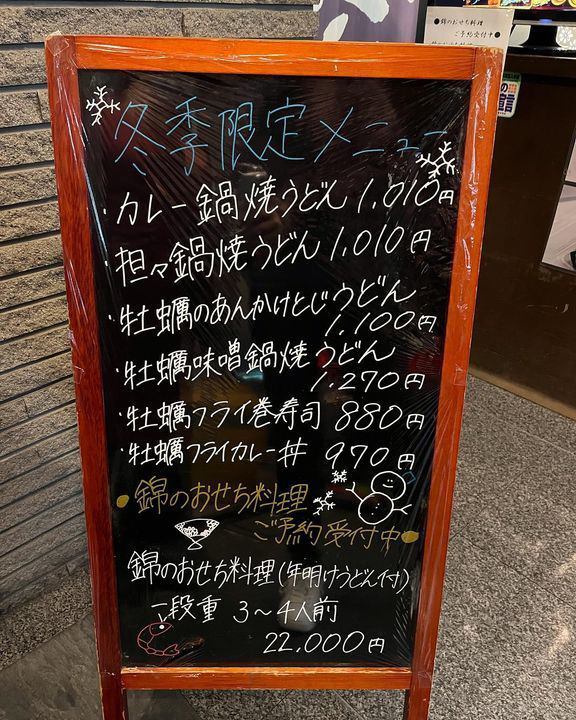 ●錦のおせち料理
ご予約受付中●
冬季限定メニュー
・カレー鍋焼うどん 1,010円
・担々鍋焼うどん 1,010円
・牡蠣のあんかけとじうどん
1,100円
・牡蠣味噌鍋焼うどん
1,270円
・牡蠣フライ巻寿司 880円
・牡蠣フライカレー丼 970円
●錦のおせち料理
ご予約受付中●
錦のおせち料理(年明けうどん付)
二段重 3〜4人前
22,000円
宣言